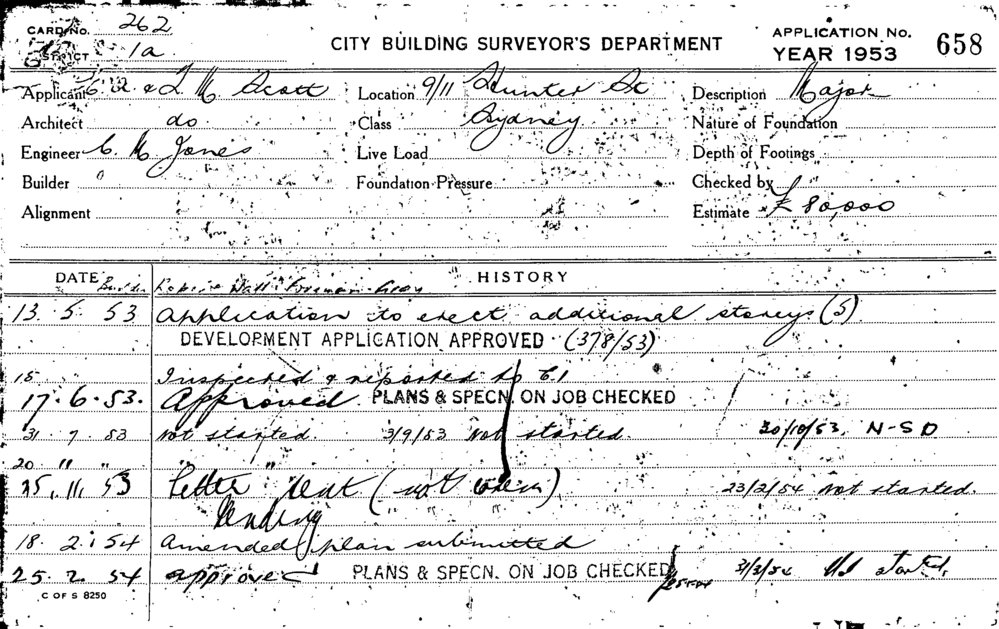 CARD No. 262
DISTRICT 1a
CITY BUILDING SURVEYOR'S DEPARTMENT
APPLICATION No. 658
YEAR 1953
Applicant & L M Scott
Location 9/11 Hunter St
Description Major
Architect do
Class Sydney
Nature of Foundation
Engineer C. M Jones
Live Load
Depth of Footings
Builder
Foundation Pressure
Checked by
Alignment
Estimate £ 80,000
DATE
HISTORY
Builder Foreman
13. 5. 53 Application to erect additional storeys (5)
DEVELOPMENT APPLICATION APPROVED (378/53)
15 Inspected & reported to C.I
17. 6. 53. Approved. PLANS & SPECN. ON JOB CHECKED
31. 7. 53 Not started. 3/9/53 Not started. 30/10/53. N-SD
20 " " " "
25. 11. 53 Letter sent (not ) 23/2/54 Not started.
18. 2. 54 Amended plan submitted
25. 2. 54 approved PLANS & SPECN. ON JOB CHECKED 3/3/54 started.
C OF S 8250